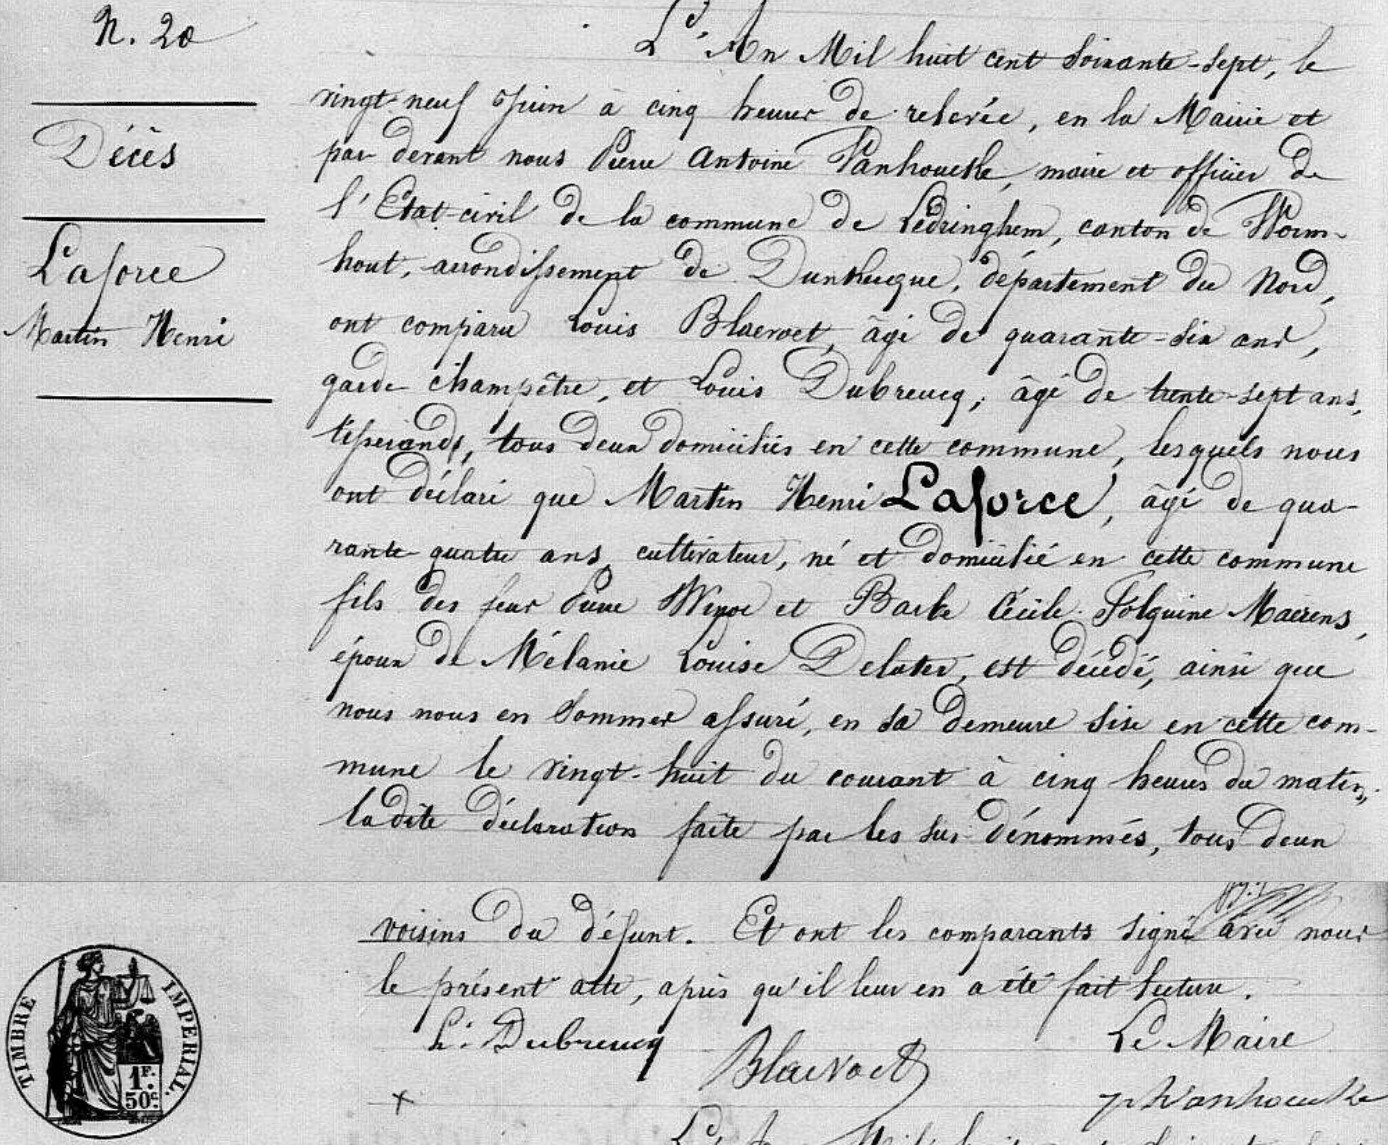 N. 20
Décès
Laforce
Martin Henri
L'An Mil huit cent soixante-sept, le
vingt-neuf Juin à cinq heures de relevée, en la Mairie et
par devant nous Pierre Antoine Vanhoucke, maire et officier de
l'Etat-civil de la commune de Lédringhem, canton de Worm-
hout, arrondissement de Dunkerque, département du Nord,
ont comparu Louis Blaevoet, âgé de quarante-six ans,
garde-champêtre, et Louis Dubreucq, âgé de trente-sept ans,
tisserands, tous deux domiciliés en cette commune, lesquels nous
ont déclaré que Martin Henri Laforce, âgé de qua-
rante-quatre ans, cultivateur, né et domicilié en cette commune
fils des feus Pierre Winoc et Barbe Cécile Folquine Maerens,
époux de Mélanie Louise Delater, est décédé, ainsi que
nous nous en sommes assuré, en sa demeure sise en cette com-
mune le vingt-huit du courant à cinq heures du matin,
la dite déclaration faite par les sus-dénommés, tous deux
voisins du défunt. Et ont les comparants signé avec nous
le présent acte, après qu'il leur en a été fait lecture.
L. Dubreucq
Blaevoet
Le Maire
P Vanhoucke
TIMBRE IMPERIAL.
1F.
50c.